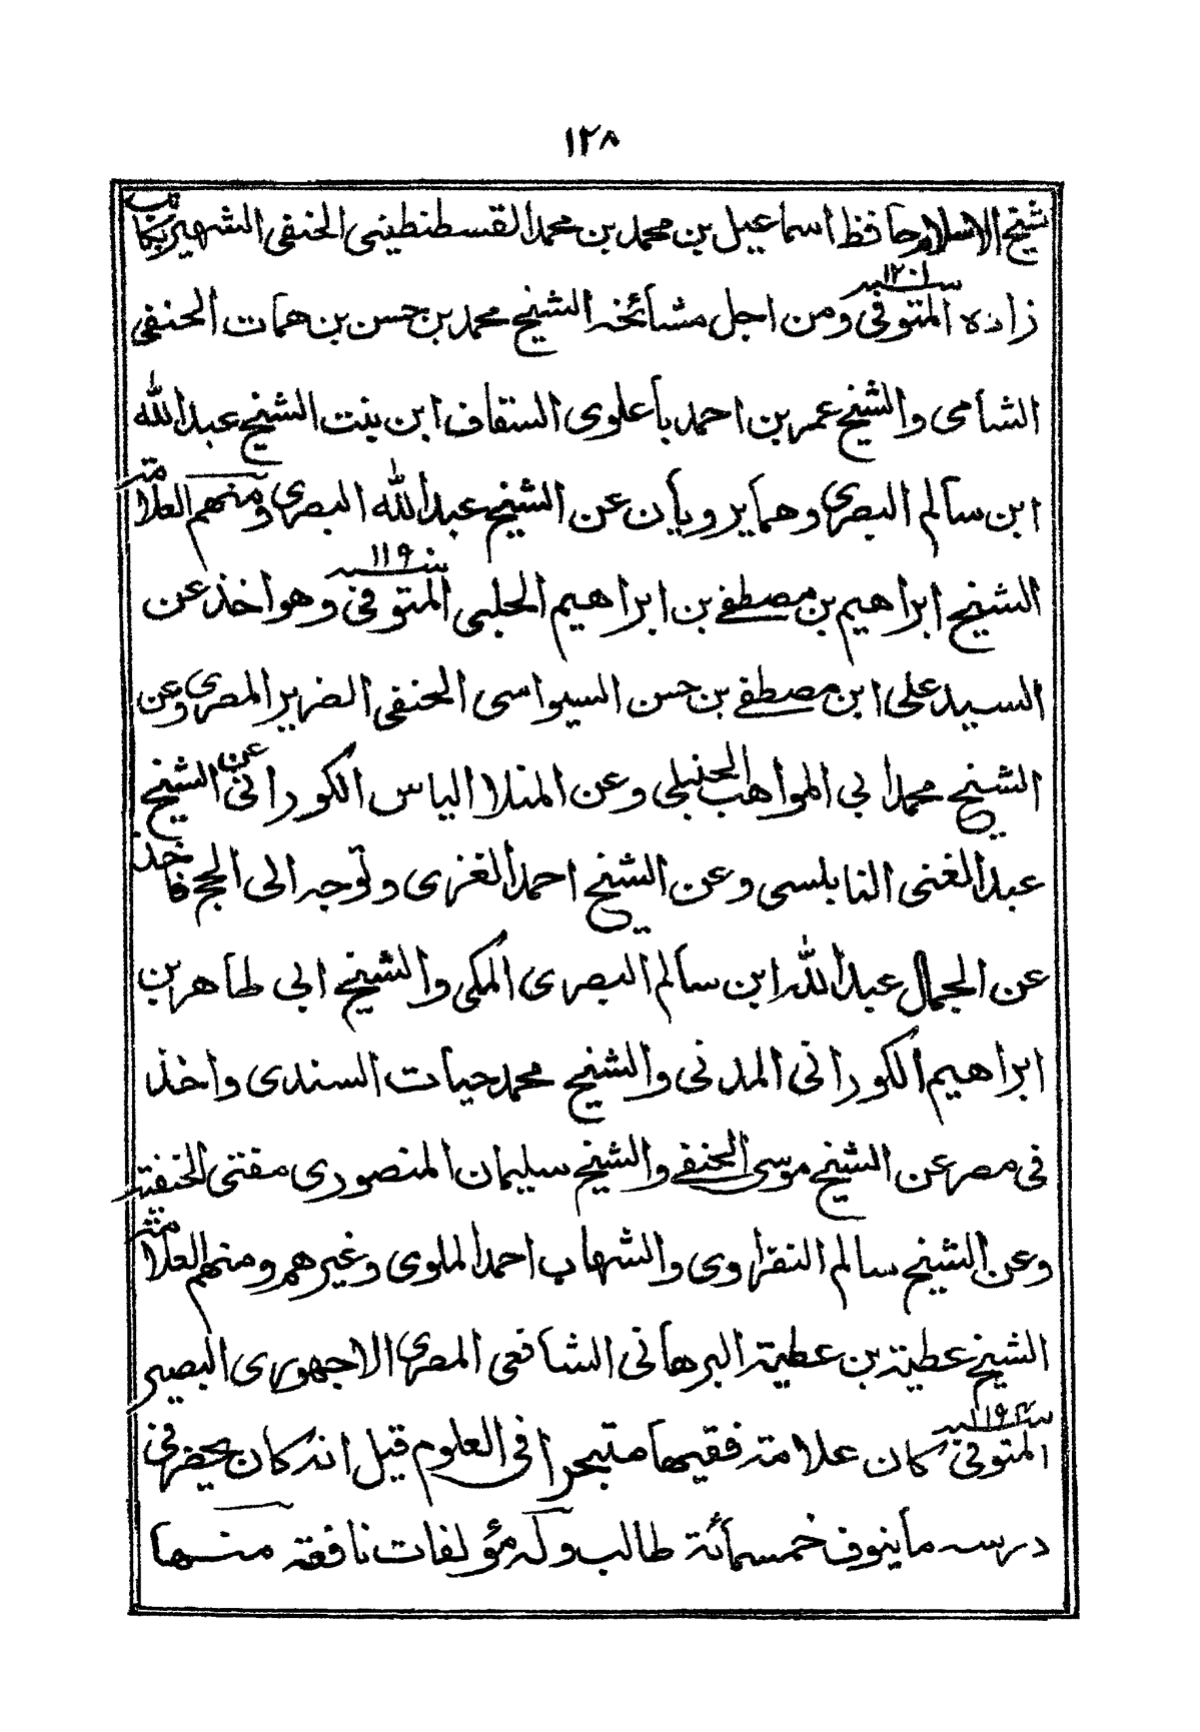 ١٢٨
شيخ الاسلام حافظ اسماعيل بن محمد بن محمد القسطنطينى الحنفى الشهير بكاتب
زاده المتوفى سنة ١٢٠١ ومن اجل مشائخه الشيخ محمد بن حسن بن همات الحنفى
الشامى والشيخ عمر بن احمد باعلوى السقاف ابن بنت الشيخ عبد الله
ابن سالم البصرى وهما يرويان عن الشيخ عبد الله البصرى ومنهم العلامة
الشيخ ابراهيم بن مصطفے بن ابراهيم الحلبى المتوفى سنة ١١٩ وهو اخذ عن
السيد على ابن مصطفے بن حسن السيواسى الحنفى الضرير المصرى وعن
الشيخ محمد ابى المواهب الحنبلى وعن المنلا الياس الكورانى عن الشيخ
عبد الغنى النابلسى وعن الشيخ احمد الغزى وتوجه الى الحج فاخذ
عن الجمال عبد الله ابن سالم البصرى المكى والشيخ ابى طاهر بن
ابراهيم الكورانى المدنى والشيخ محمد حيات السندى واخذ
فى مصر عن الشيخ موسى الحنفے والشيخ سليمان المنصورى مفتى الحنفية
وعن الشيخ سالم النفراوى والشهاب احمد الملوى وغيرهم ومنهم العلامة
الشيخ عطية بن عطية البرهانى الشافعى المصرى الاجهورى البصير
المتوفى سنة ١١٩٤ كان علامة فقيها متبحرا فى العلوم قيل انه كان يحضر فى
درسه ما ينوف خمسمائة طالب وله مؤلفات نافعة منها